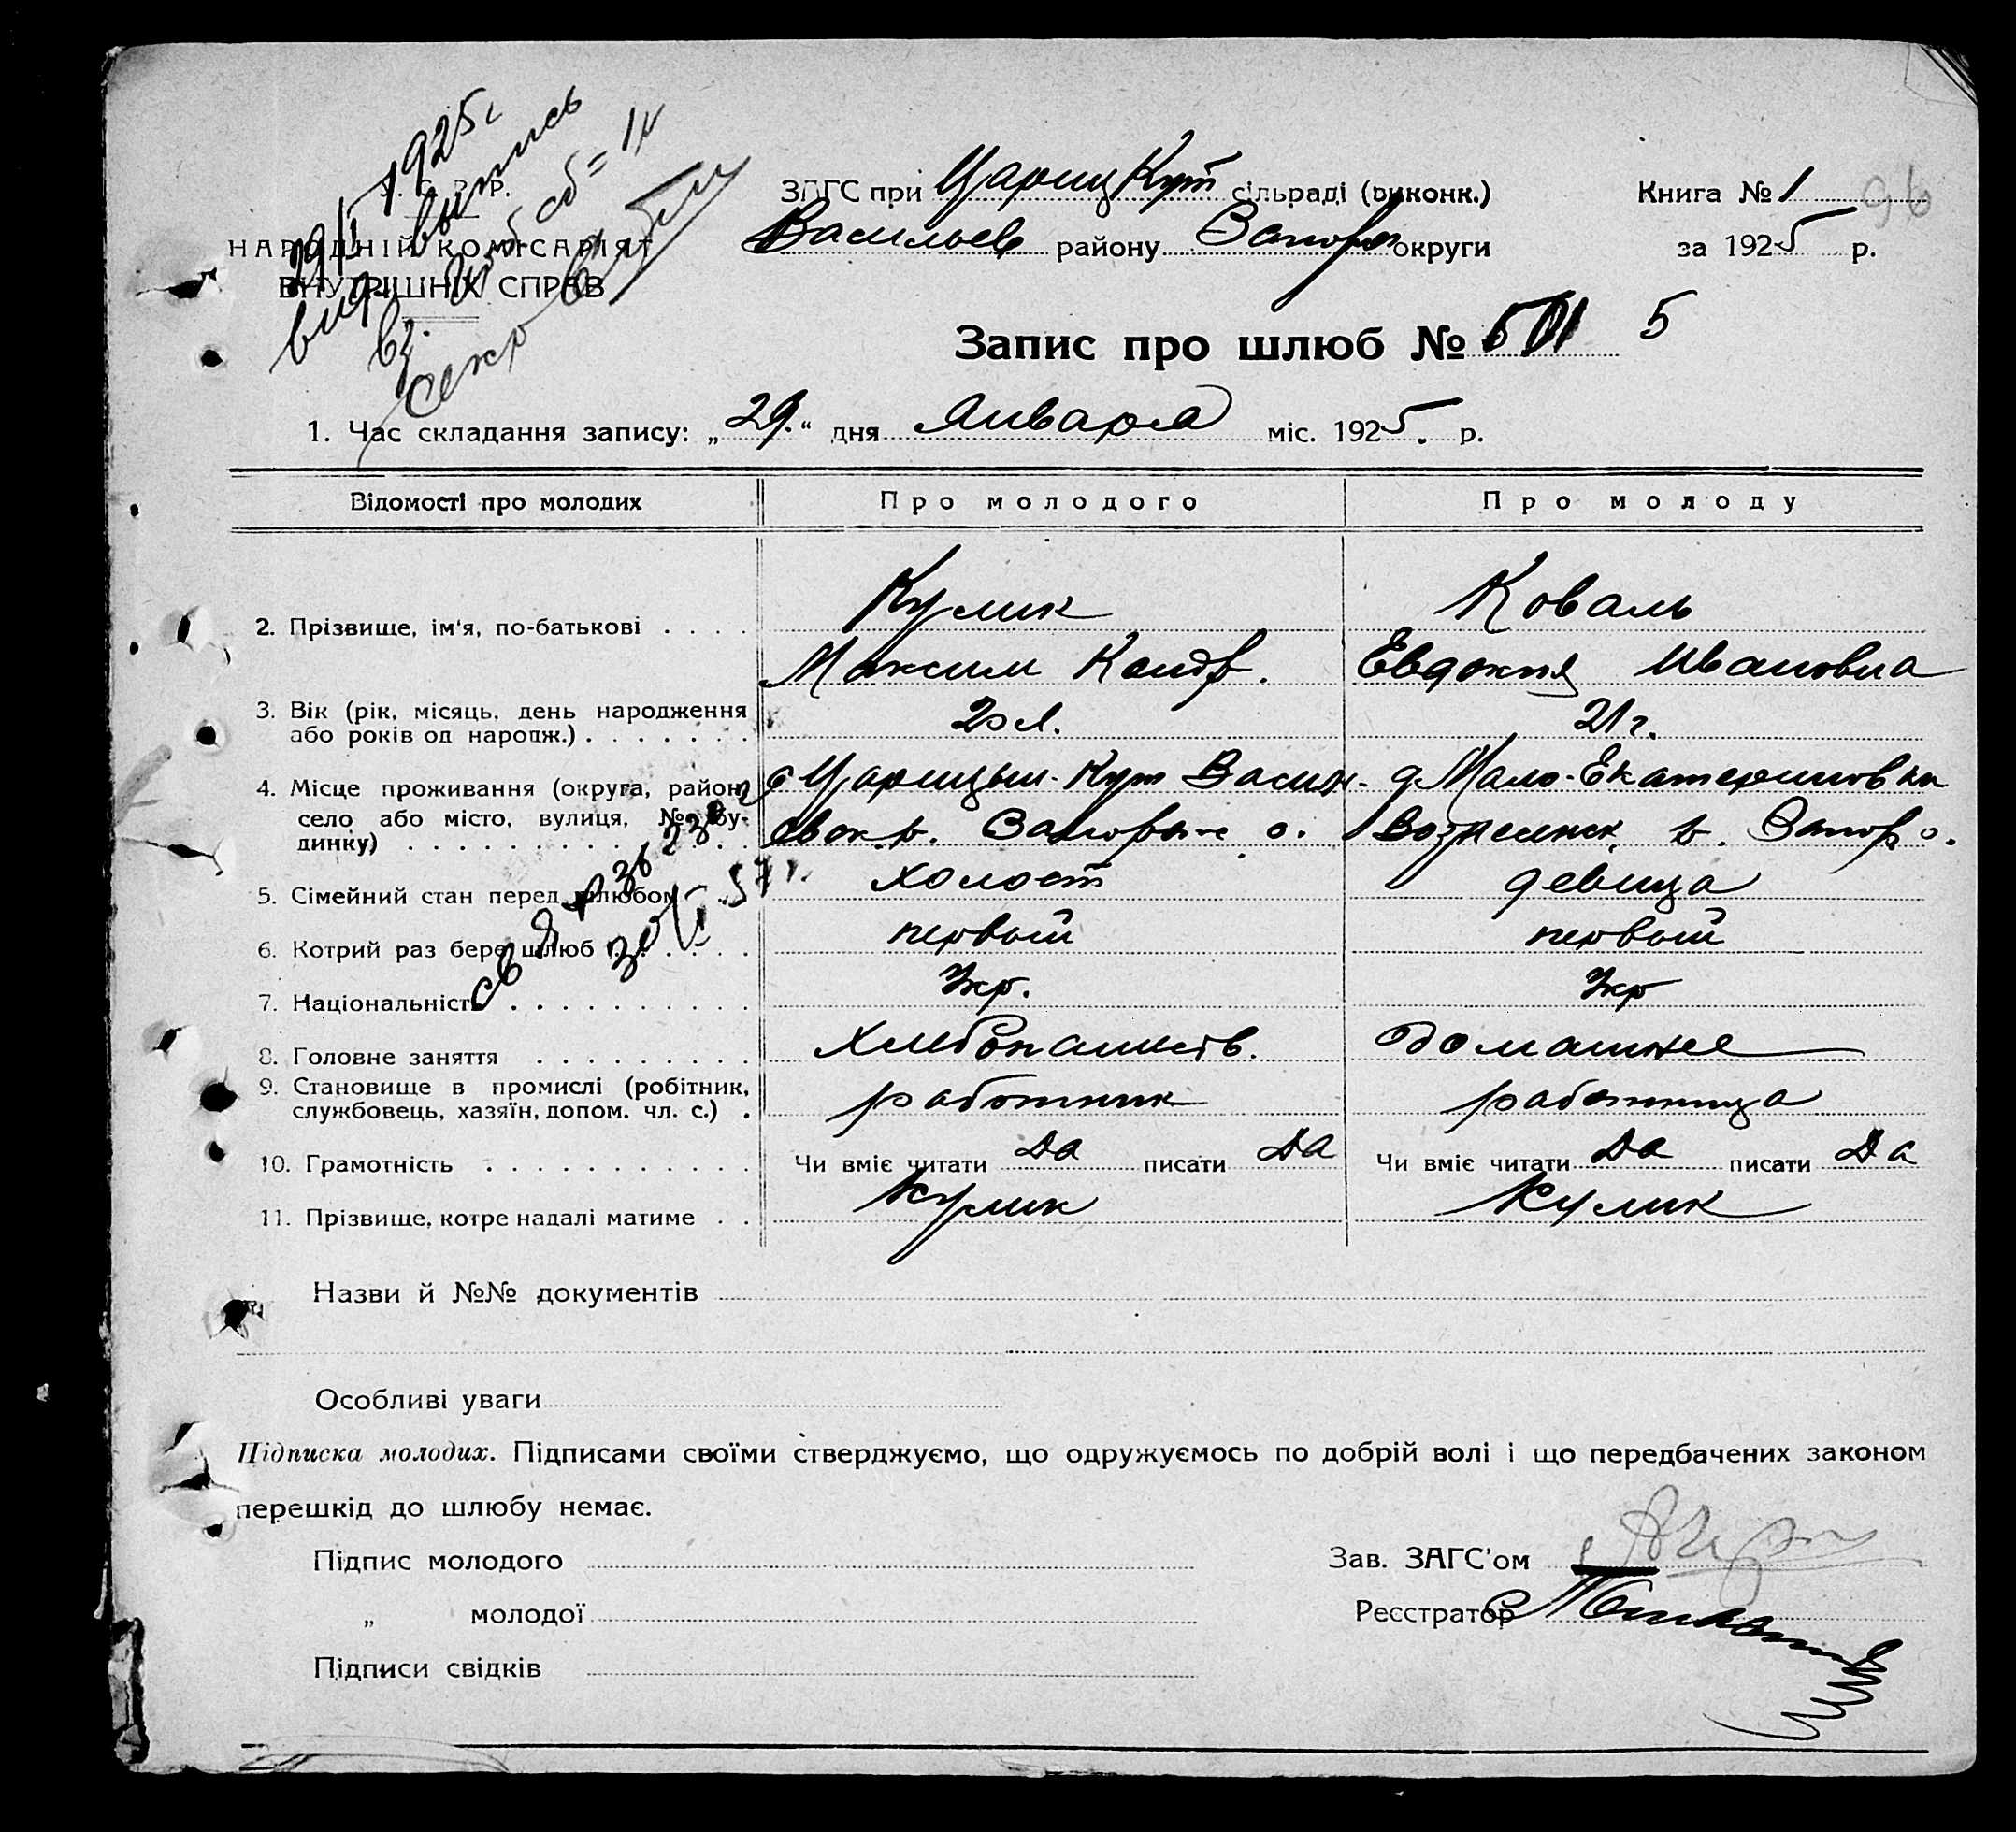 29/I 1925 г
выд. выпись
У. С. Р. Р.
НАРОДНІЙ КОМІСАРІЯТ
ВНУТРІШНІХ СПРАВ
ЗАГС при Цариц Кут сільраді (виконк.)
Васильев району Запор округи
Книга № 1 96
за 1925 р.
Запис про шлюб № 5
1. Час складання запису: „29.“ дня Января міс. 1925. р.
Відомості про молодих Про молодого Про молоду
Кулик Коваль
2. Прізвище, ім'я, по-батькові
Максим Кондр. Евдокия Ивановна
3. Вік (рік, місяць, день народження
або років од народж.) 20 л. 21 г.
4. Місце проживання (округа, район, с Царицын-Кут Васил- д Мало-Екатериновки
село або місто, вулиця, № бу-
динку) евск. р. Запорож о. Вознесенск. р. Запор о.
5. Сімейний стан перед шлюбом холост девица
6. Котрий раз бере шлюб первый первый
7. Національність Укр. Укр
8. Головне заняття хлебопашеств. домашнее
9. Становище в промислі (робітник,
службовець, хазяїн, допом. чл. с.) работник работница
10. Грамотність Чи вміє читати Да писати Да Чи вміє читати Да писати Да
11. Прізвище, котре надалі матиме Кулик Кулик
Назви й №№ документів
Особливі уваги
Підписка молодих. Підписами своїми стверджуємо, що одружуємось по добрій волі і що передбачених законом
перешкід до шлюбу немає.
Підпис молодого Зав. ЗАГС'ом
„ молодої Реєстратор
Підписи свідків